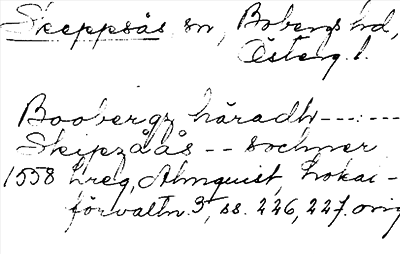 Skeppsås sn, Bobergs hd,
Österg. l.
Boobergz häradh---:---
Skipzåås -- sochner
1558 Lreg, Almquist, Lokal-
förvaltn. 3, ss. 226, 227. orig